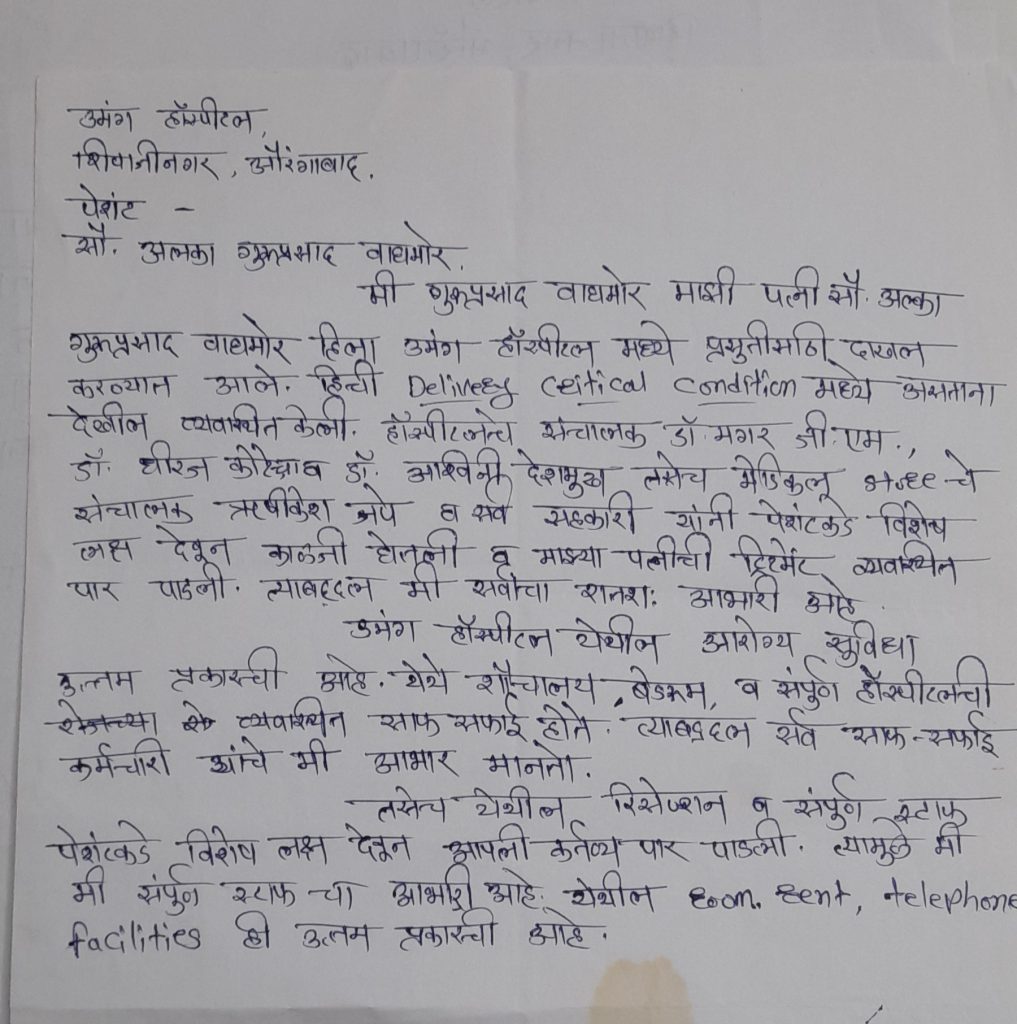 उमंग हॉस्पीटल,
शिवाजीनगर, औरंगाबाद.
पेशंट -
सौ. अलका गुरुप्रसाद वाघमोरे.
मी गुरुप्रसाद वाघमोरे माझी पत्नी सौ. अल्का
गुरुप्रसाद वाघमोरे हिला उमंग हॉस्पीटल मध्ये प्रसुतीसाठी दाखल
करण्यात आले. हिची Delivery Critical Condition मध्ये असताना
देखील व्यवस्थित केली. हॉस्पीटलचे संचालक डॉ. मगर जी. एम.,
डॉ. धीरज व डॉ. आश्विनी देशमुख तसेच मेडिकल चे
संचालक ऋषीकेश व सर्व सहकारी यांनी पेशंटकडे विशेष
लक्ष देवून काळजी घेतली व माझ्या पत्नीची ट्रिटमेंट व्यवस्थित
पार पाडली. त्याबद्दल मी सर्वांचा शतशः आभारी आहे.
उमंग हॉस्पीटल येथील आरोग्य सुविधा
उत्तम प्रकारची आहे. येथे शौचालय, बेडरूम, व संपुर्ण हॉस्पीटलची
व्यवस्थित साफ सफाई होते. त्याबद्दल सर्व साफ-सफाई
कर्मचारी यांचे मी आभार मानतो.
तसेच येथील रिसेप्शन व संपुर्ण स्टाफ
पेशंटकडे विशेष लक्ष देवून आपली कर्तव्य पार पाडली. त्यामुळे मी
मी संपुर्ण स्टाफ चा आभारी आहे. येथील room rent, telephone
facilities ही उत्तम प्रकारची आहे.